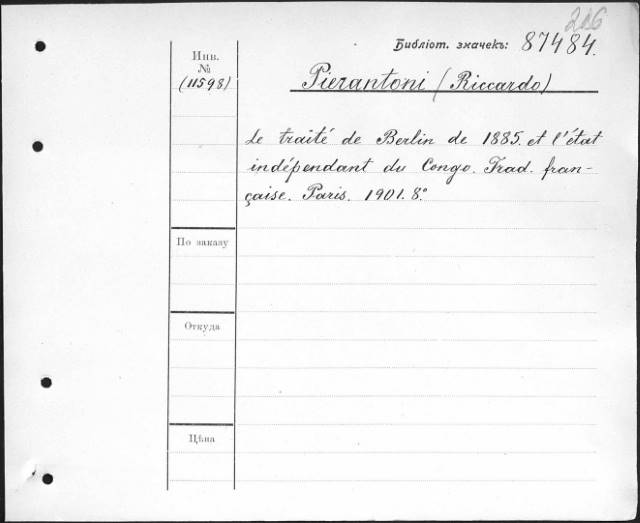 216
Библіот. значекъ: 87484.
Инв.
№
(11598)
Pierantoni (Riccardo)
Le traité de Berlin de 1885. et l'état
indépendant du Congo. Trad. fran-
çaise. Paris. 1901. 8.°
По заказу
Откуда
Цѣна